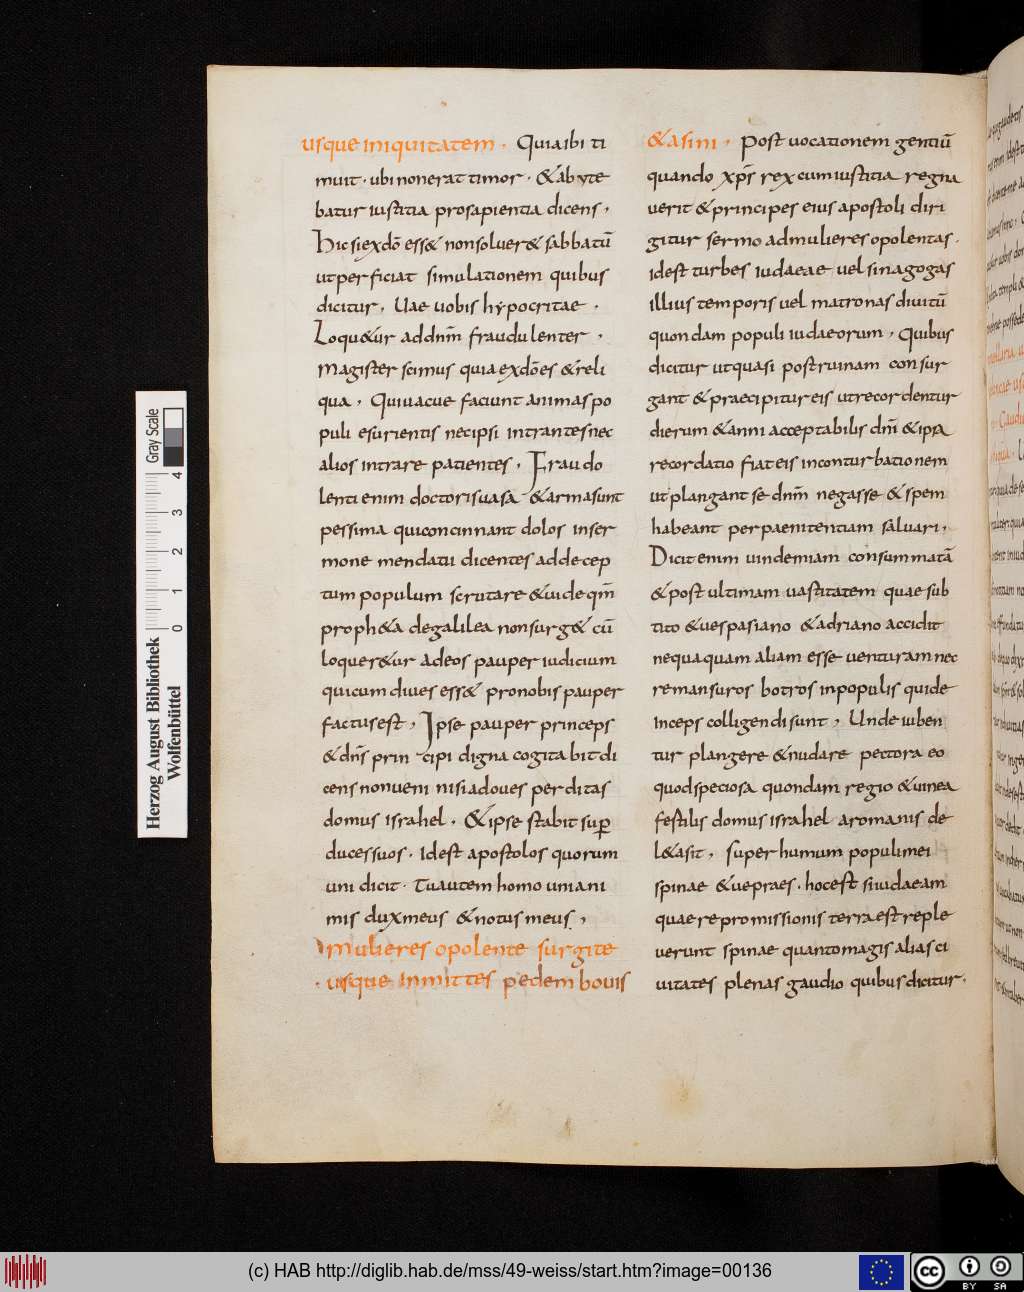 usque iniquitatem. Quia ibi ti
muit. ubi non erat timor. & ab yte
batur iustitia prosapientia dicens,
Hic si ex dō ess& non solver& sabbatū
ut perficiat simulationem quibus
dicitur, Uae uobis hypocritae.
Loqu&ur ad dnm̄ fraudulenter.
magister scimus quia ex dō es & reli
qua, Qui uacue faciunt animas po
puli esurientis nec ipsi intrantes nec
alios intrare patientes, Fraudo
lenti enim doctoris uasa & arma sunt
pessima qui concinnant dolos in ser
mone mendatii dicentes ad decep
tum populum scrutare & uide qm̄
proph&a de galilea non surg& cū
loquer&ur ad eos pauper iudicium
qui cum diues ess& pro nobis pauper
factus est, Ipse pauper princeps
& dns̄ prin cipi digna cogitabit di
cens non ueni nisi ad oues perditas
domus israhel. & ipse stabit sup̄
duces suos. Idest apostolos quorum
uni dicit. Tu autem homo uniani
mis dux meus & notus meus,
mulieres opolente surgite
usque inmittes pedem bouis
& asini. Post uocationem gentiū
quando xps̄ rex cum iustitia regna
uerit & principes eius apostoli diri
gitur sermo ad mulieres opolentas.
idest turbes iudaeae uel sinagogas
illius temporis uel matronas diuitū
quondam populi iudaeorum, Quibus
dicitur ut quasi post ruinam consur
gant & praecipitur eis ut recordentur
dierum & anni acceptabilis dnī & ipsa
recordatio fiat eis in conturbationem
ut plangant se dnm̄ negasse & spem
habeant per paenitentiam saluari,
Dicit enim uindemiam consummatā
& post ultimam uastitatem quae sub
tito & uespasiano & adriano accidit
nequaquam aliam esse uenturam nec
remansuros botros in populis qui de
inceps colligendi sunt, Unde iuben
tur plangere & nudare pectora eo
quod speciosa quondam regio & uinea
festilis domus israhel a romanis de
l&a sit, super humum populi mei
spinae & uepraes. hoc est si iudaeam
quae repromissionis terra est reple
uerunt spinae quanto magis alias ci
uitates plenas gaudio quibus dicitur.
Gray Scale
0 1 2 3 4
Herzog August Bibliothek
Wolfenbüttel
(c) HAB http://diglib.hab.de/mss/49-weiss/start.htm?image=00136
cc BY SA